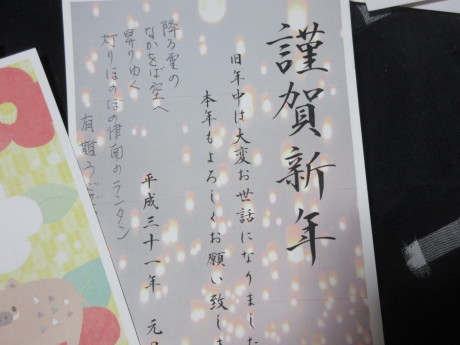 謹賀新年
旧年中は大変お世話になりました
本年もよろしくお願い致しま
平成三十一年 元
降る雪の
なかをば空へ
昇りゆく
灯りほのほの津南のランタン